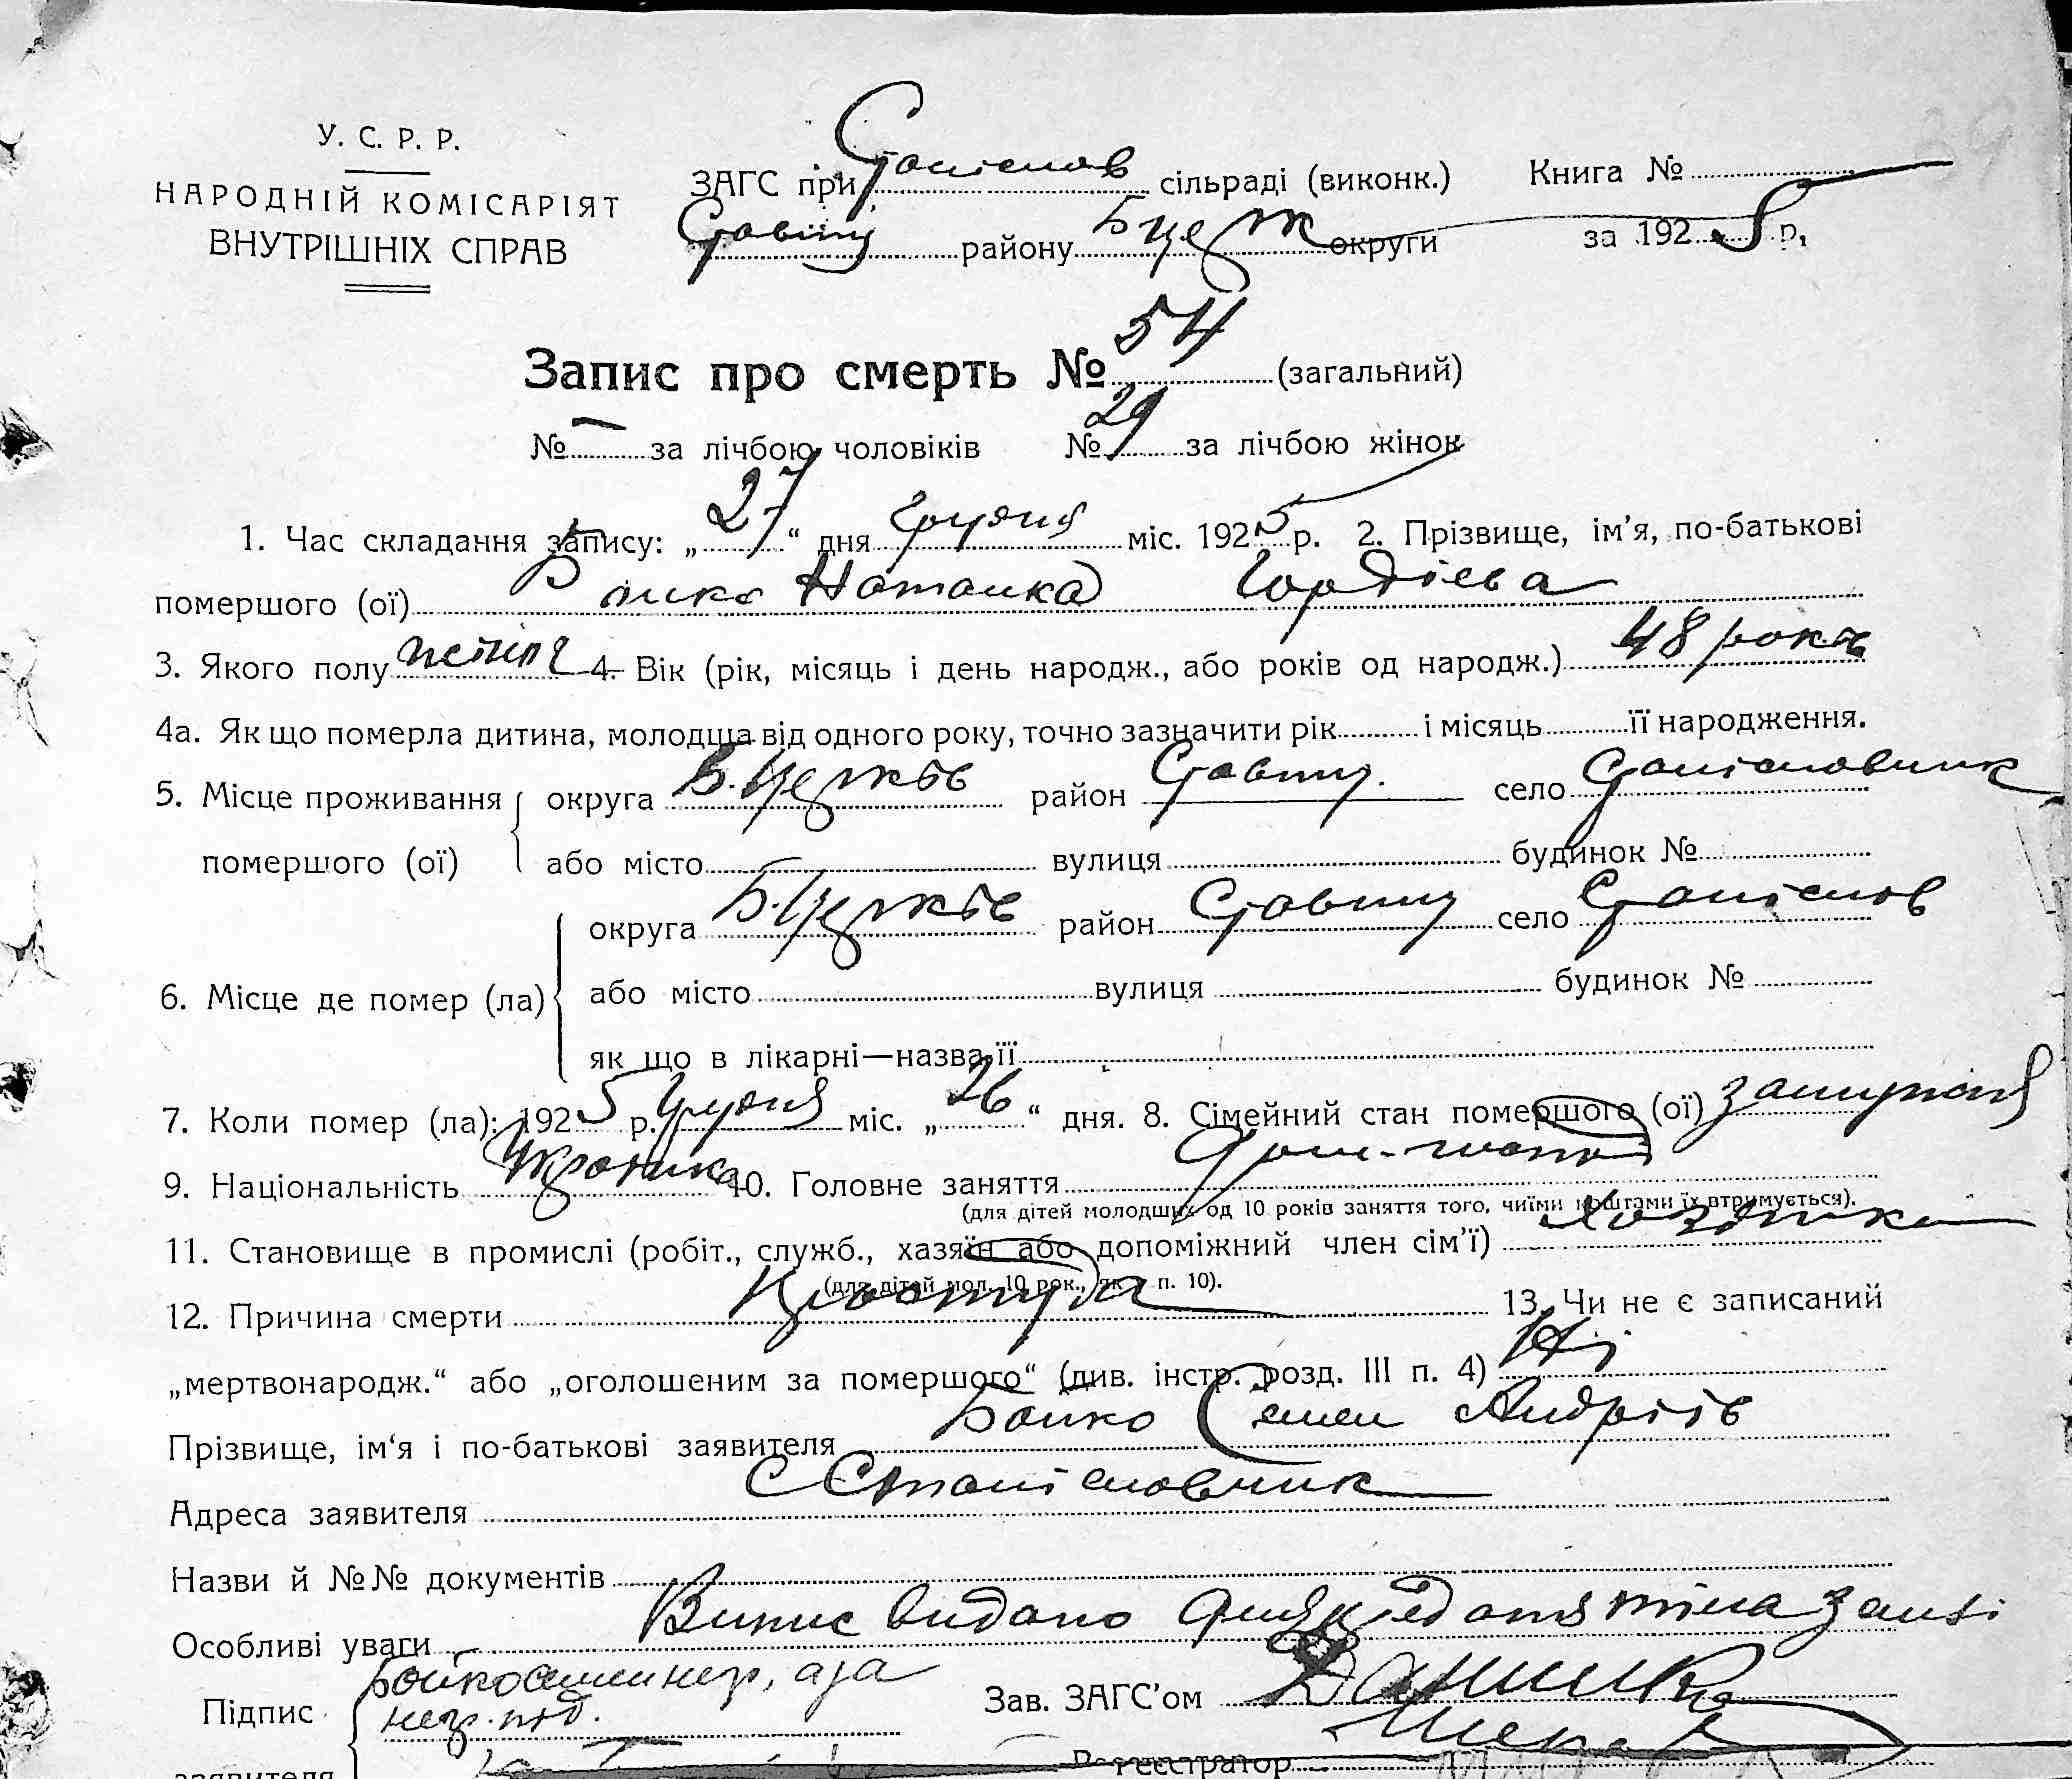 У. С. Р. Р.
НАРОДНІЙ КОМІСАРІЯТ
ВНУТРІШНІХ СПРАВ
ЗАГС при Станіслов сільраді (виконк.) Книга №
Ставищ району Б Церк округи за 1925 р.
Запис про смерть № 54 (загальний)
№ — за лічбою чоловіків № 29 за лічбою жінок
1. Час складання запису: „ 27 “ дня Грудня міс. 1925 р. 2. Прізвище, ім'я, по-батькові
помершого (ої) Бойко Наталка Гордієва
3. Якого полу 4. Вік (рік, місяць і день народж., або років од народж.) 48 років
4а. Як що померла дитина, молодща від одного року, точно зазначити рік і місяць її народження.
5. Місце проживання округа Б. Церків район Ставищ. село Станіславчик
помершого (ої) або місто вулиця будинок №
округа Б. Церків район Ставищ село Станіслов
6. Місце де помер (ла) або місто вулиця будинок №
як що в лікарні—назва її
7. Коли помер (ла): 1925 р. Грудня міс. „ 26 “ дня. 8. Сімейний стан помершого (ої) замужня
9. Національність Українка 10. Головне заняття
(для дітей молодших од 10 років заняття того, чиїми коштами їх втримується).
11. Становище в промислі (робіт., служб., хазяїн або допоміжний член сім'ї) Хозяйка
(для дітей мол. 10 рок., як п. 10).
12. Причина смерти 13. Чи не є записаний
„мертвонародж.“ або „оголошеним за помершого“ (див. інстр. розд. III п. 4) Ні
Прізвище, ім'я і по-батькові заявителя Бойко Семен Андріїв
Адреса заявителя С Станіславчик
Назви й №№ документів
Особливі уваги Випис видано для тіла землі
Підпис Бойко неграм, а за Зав. ЗАГС'ом
нег.
заявителя Реєстратор